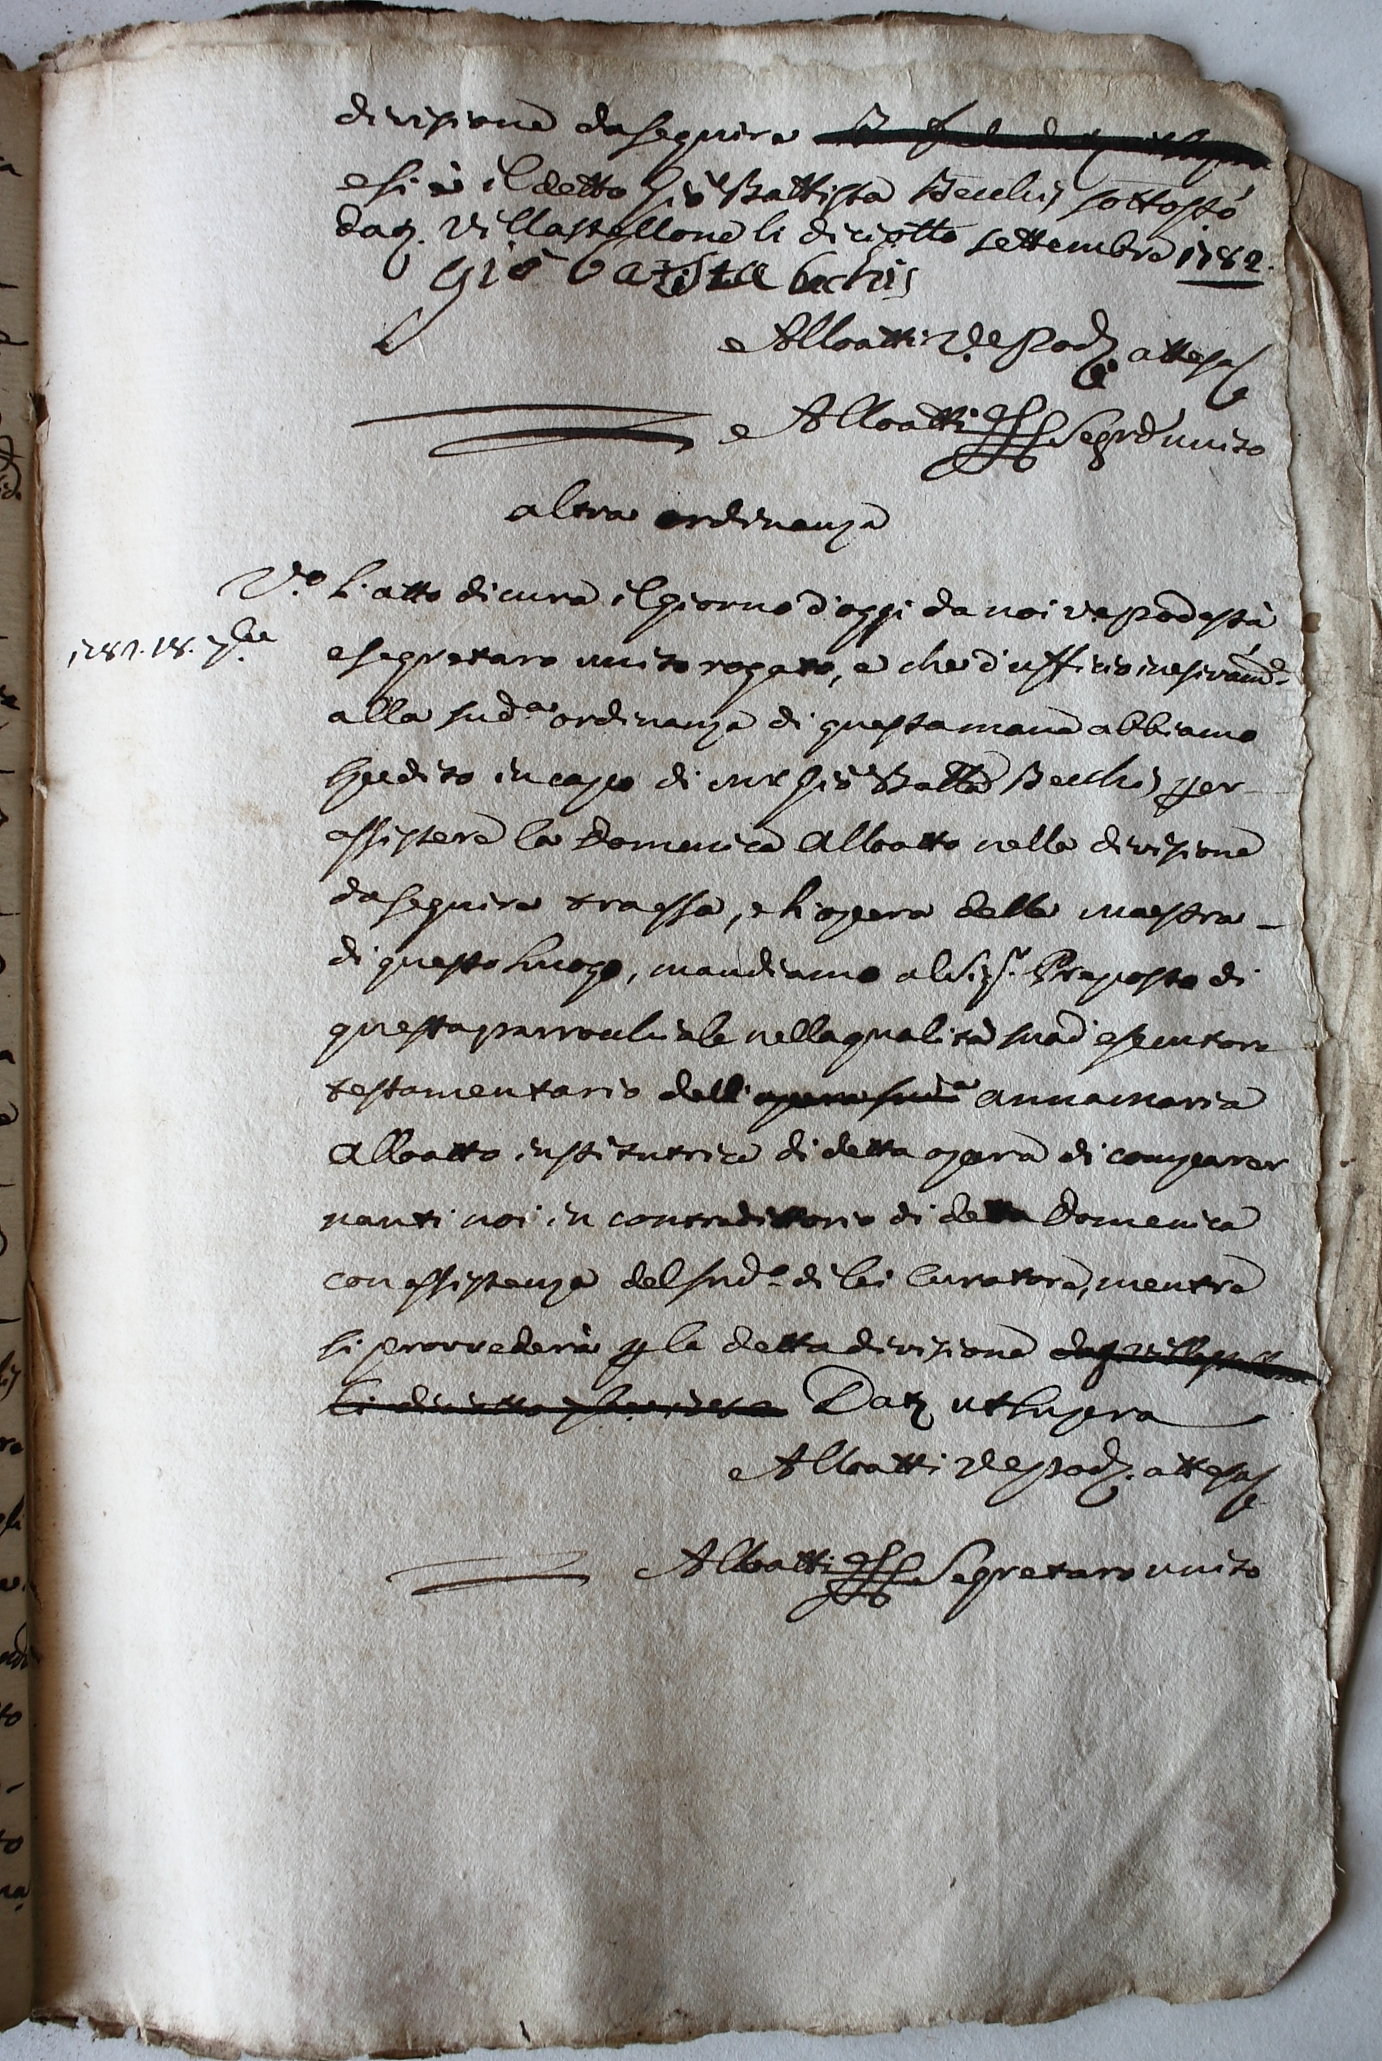 divisione da seguire
e si è il detto Gio Battista Becchis sottostō
dat. Villastellone li diciotto settembre 1782.
gio batista bechis
Alloatti V.e Pod. attesa
Alloatti Segrō unito
altra ordinanza
V.o L'atto di cura il giorno d'oggi da noi vepodestà
1782. 18. 7bre
e segretaro unito rogato, e che d'ufficio inesivamte
alla sud.a ordinanza di questa mane abbiamo
spedito in capo di mr Gio Batta Becchis per
assistere la Domenica Alloatto nella divisione
da seguire tra essa, e l'opera delle maestre
di questo luogo, mandiamo al Sig.r Preposto di
questa parrochiale nella qualità sua d'esecutore
testamentario dell' opera sud.a anna maria
Alloatto institutrice di detta opera di comparer
nanti noi in contradittorio di detta Domenica
con assistenza del sud.o di lei Curatore, mentre
si provvederà p la detta divisione
li diciotto 7bre Dat ut supra
Alloatti Ve Pod. attesa
Alloatti Segretaro unito